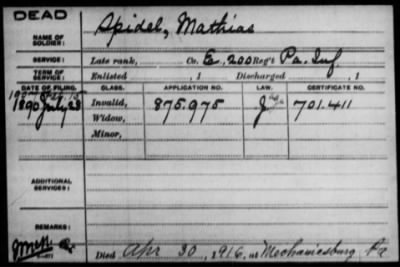 DEAD
NAME OF SOLDIER: Spidel, Mathias
SERVICE: Late rank, Co. E, 200 Reg't Pa. Inf.
TERM OF SERVICE: Enlisted , 1 Discharged , 1
DATE OF FILING. CLASS. APPLICATION NO. LAW. CERTIFICATE NO.
1890 July 28 Invalid, 875.975 J 701.411
Widow,
Minor,
ADDITIONAL SERVICES:
REMARKS:
Died Apr 30, 1916, at Mechanicsburg Pa